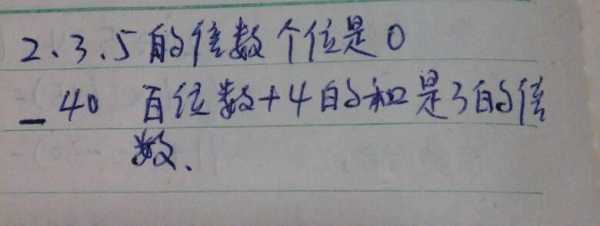 2、3、5的倍数个位是0
_40 百位数+4的和是3的倍
数、